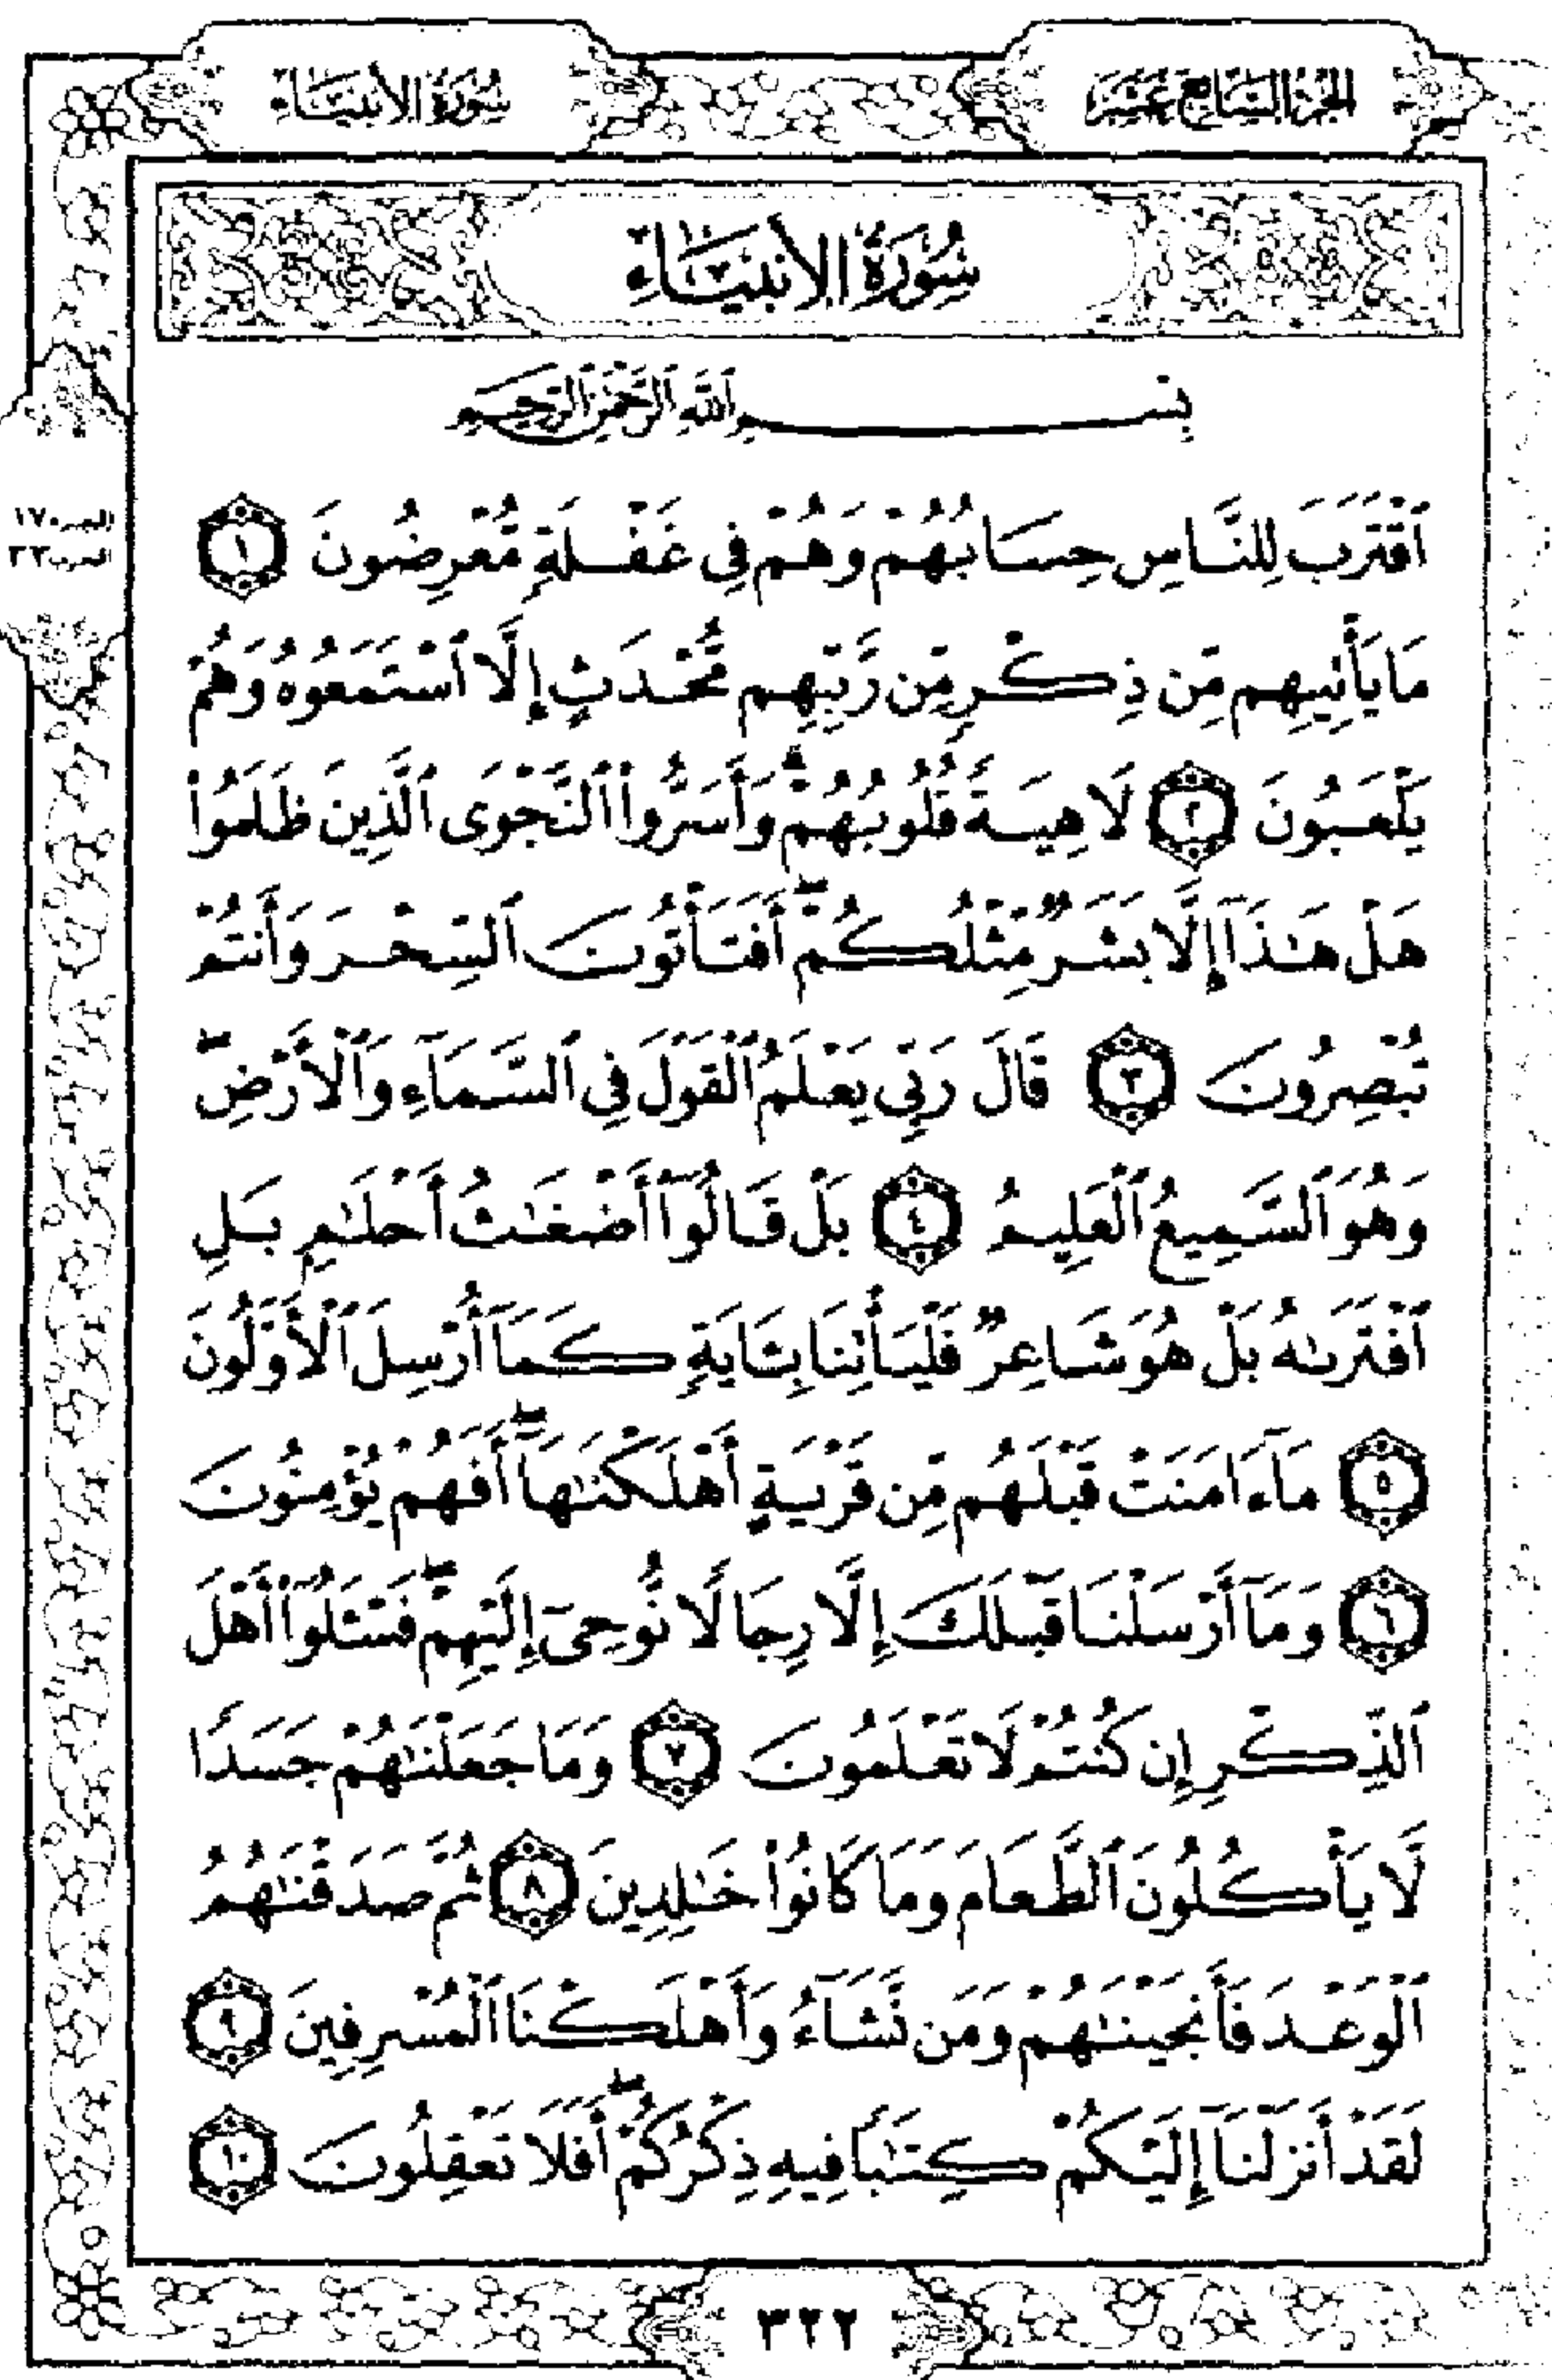 الجزء السابع عشر
سورة الأنبياء
سُورَةُ الأَنبِيَاءِ
بِسْمِ ٱللَّهِ ٱلرَّحْمَٰنِ ٱلرَّحِيمِ
ٱقْتَرَبَ لِلنَّاسِ حِسَابُهُمْ وَهُمْ فِى غَفْلَةٍ مُّعْرِضُونَ ١
مَا يَأْتِيهِم مِّن ذِكْرٍ مِّن رَّبِّهِم مُّحْدَثٍ إِلَّا ٱسْتَمَعُوهُ وَهُمْ
يَلْعَبُونَ ٢ لَاهِيَةً قُلُوبُهُمْ ۗ وَأَسَرُّوا۟ ٱلنَّجْوَى ٱلَّذِينَ ظَلَمُوا۟
هَلْ هَٰذَآ إِلَّا بَشَرٌ مِّثْلُكُمْ ۖ أَفَتَأْتُونَ ٱلسِّحْرَ وَأَنتُمْ
تُبْصِرُونَ ٣ قَالَ رَبِّى يَعْلَمُ ٱلْقَوْلَ فِى ٱلسَّمَآءِ وَٱلْأَرْضِ ۖ
وَهُوَ ٱلسَّمِيعُ ٱلْعَلِيمُ ٤ بَلْ قَالُوٓا۟ أَضْغَٰثُ أَحْلَٰمٍ بَلِ
ٱفْتَرَىٰهُ بَلْ هُوَ شَاعِرٌ فَلْيَأْتِنَا بِـَٔايَةٍ كَمَآ أُرْسِلَ ٱلْأَوَّلُونَ
٥ مَآ ءَامَنَتْ قَبْلَهُم مِّن قَرْيَةٍ أَهْلَكْنَٰهَآ ۖ أَفَهُمْ يُؤْمِنُونَ
٦ وَمَآ أَرْسَلْنَا قَبْلَكَ إِلَّا رِجَالًا نُّوحِىٓ إِلَيْهِمْ ۖ فَسْـَٔلُوٓا۟ أَهْلَ
ٱلذِّكْرِ إِن كُنتُمْ لَا تَعْلَمُونَ ٧ وَمَا جَعَلْنَٰهُمْ جَسَدًا
لَّا يَأْكُلُونَ ٱلطَّعَامَ وَمَا كَانُوا۟ خَٰلِدِينَ ٨ ثُمَّ صَدَقْنَٰهُمُ
ٱلْوَعْدَ فَأَنجَيْنَٰهُمْ وَمَن نَّشَآءُ وَأَهْلَكْنَا ٱلْمُسْرِفِينَ ٩
لَقَدْ أَنزَلْنَآ إِلَيْكُمْ كِتَٰبًا فِيهِ ذِكْرُكُمْ ۖ أَفَلَا تَعْقِلُونَ ١٠
٣٢٢